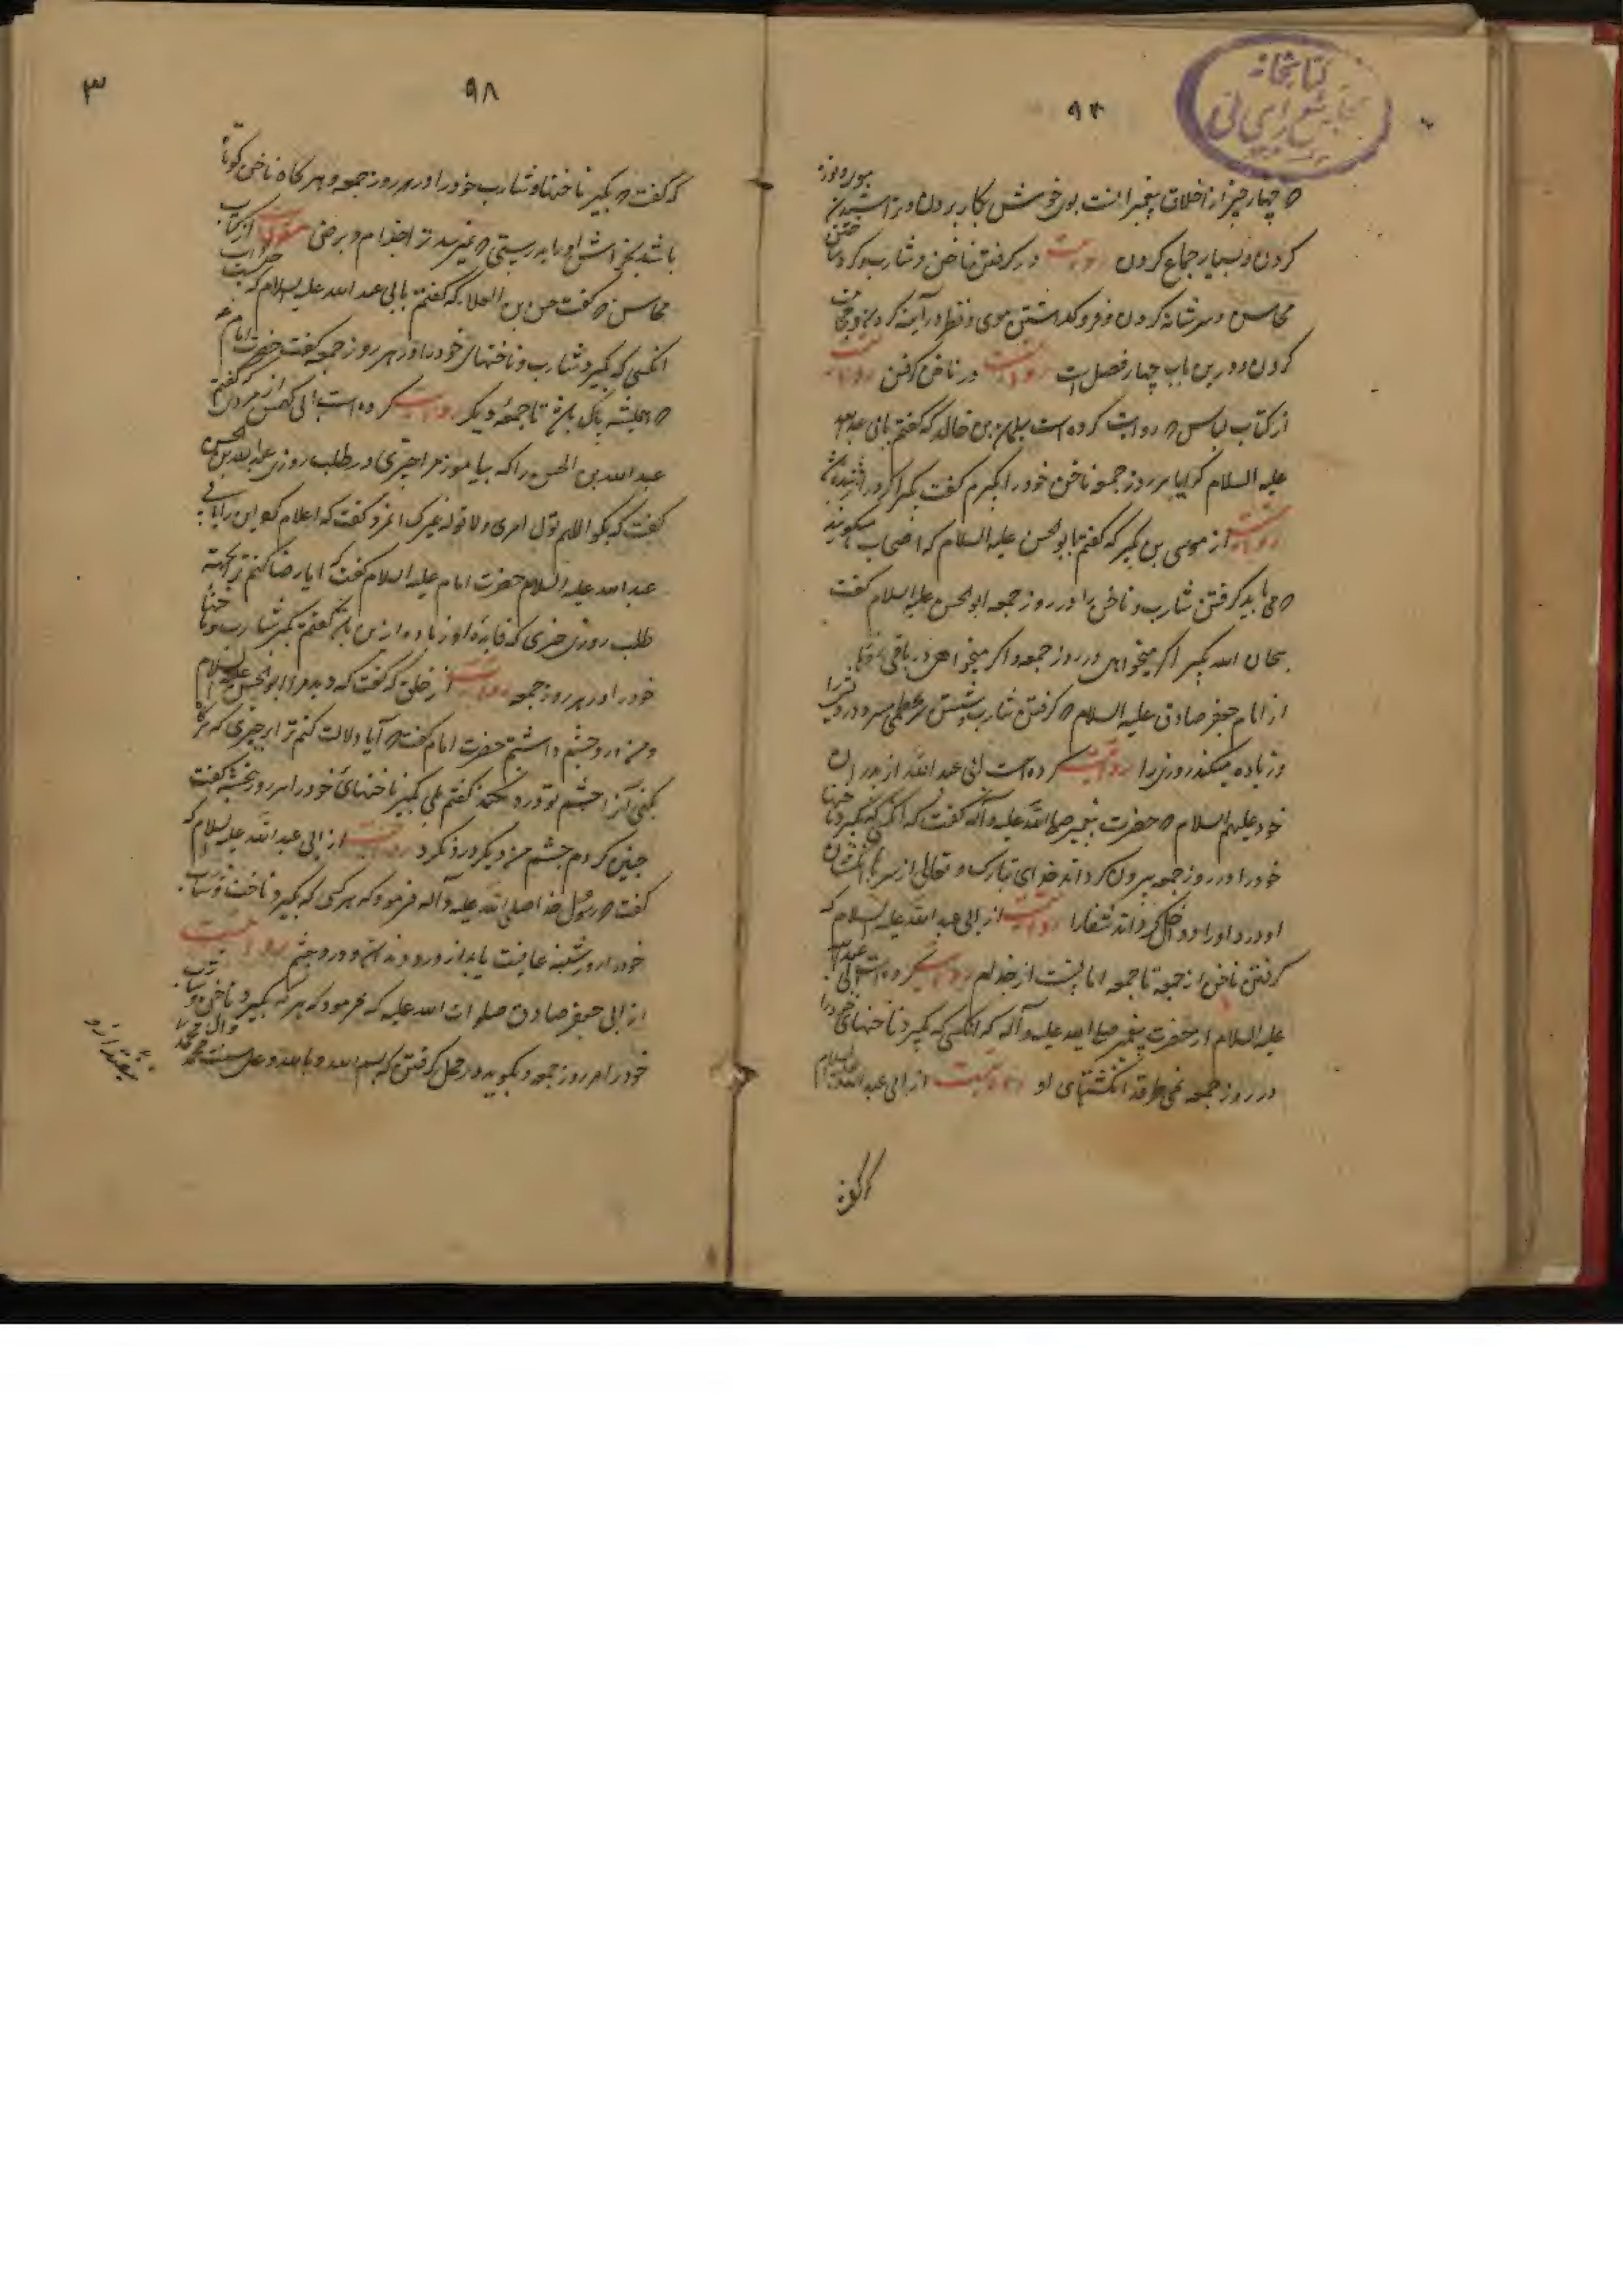 کتابخانه
مجلس شورای ملی
که چهار چیز از اخلاق پیغمبرانست بوی خوش بکار بردن و تراشیدن
کردن و بسیار جماع کردن روایت در گرفتن ناخن و شارب و
محاسن و سر شانه کردن و فرو گذاشتن موی و نظر در آینه کردن و
کردن و درین باب چهار فصل است در ناخن گرفتن روایت
از کتاب لباس که روایت کرده است سلیمان بن خالد که گفتم بابی عبد الله
علیه السلام که ایا هر روز جمعه ناخن خود را بگیرم گفت بگیر اگر دراز شده باشد
روایت از موسی بن بکیر که گفتم بابو الحسن علیه السلام که اصحاب ما میگویند
که می باید گرفتن شارب و ناخن را در روز جمعه ابو الحسن علیه السلام گفت
سبحان الله بگیر اگر میخواهی در روز جمعه و اگر میخواهی در باقی روزها
از امام جعفر صادق علیه السلام که گرفتن شارب و شستن سر بخطمی میبرد درویشی را
و زیاده میکند روزی را روایت کرده است ابی عبد الله از پدران
خود علیهم السلام که حضرت پیغمبر صلی الله علیه و آله گفت که انکسی که بگیرد ناخنها
خود را در روز جمعه بیرون گرداند خدای تبارک و تعالی از سر انگشتان
او درد و او را و داخل گرداند شفا را روایت از ابی عبد الله علیه السلام که
گرفتن ناخن از جمعه تا جمعه امانیست از جذام روایت کرده است ابی عبد الله
علیه السلام از حضرت پیغمبر صلی الله علیه و آله که انکسی که بگیرد ناخنهای خود را
در روز جمعه نمی طرقد انگشتهای او روایت از ابی عبد الله علیه السلام
۹۸
۳
که گفت که بگیر ناخنها و شارب خود را در هر روز جمعه و هر گاه ناخن کوتاه
باشد بخراش او را بدرستی که نمیرسد ترا جذام و برص منقولست از کتاب
محاسن که گفت حسن بن العلا که گفتم بابی عبد الله علیه السلام که چیست ثواب
انکسی که بگیرد شارب و ناخنهای خود را در هر روز جمعه گفت حضرت امام
که همیشه پاک باشد تا جمعه دیگر روایت کرده است ابی کهمس از مردی که گفتم
عبد الله بن الحسن را که بیاموز مرا چیزی در طلب روزی عبد الله بن الحسن
گفت که بگو اللهم تول امری و لا توله غیرک
عبد الله علیه السلام حضرت امام علیه السلام گفت که
طلب روزی چیزی که فایده او زیاده ازین باشد گفتم بگیر شارب و ناخنها
خود را در هر روز جمعه روایت از خلف که گفت که دید مرا ابو الحسن علیه السلام
و من درد چشم داشتم حضرت امام گفت که آیا دلالت کنم ترا بر چیزی که هرگاه
بکنی آنرا چشم تو درد نکند گفتم بلی بگیر ناخنهای خود را هر روز پنجشنبه گفت
چنین کردم چشم من دیگر درد نکرد روایت از ابی عبد الله علیه السلام که
گفت که رسول خدا صلی الله علیه و آله فرمود که هر کسی که بگیرد ناخن و شارب
خود را روز شنبه عافیت یابد از درد دندان و درد چشم روایت
از ابی جعفر صادق صلوات الله علیه که فرمود که هر که بگیرد ناخن و شارب
خود را هر روز جمعه و بگوید در محل گرفتن که بسم الله و بالله و علی سنت محمد و آل محمد